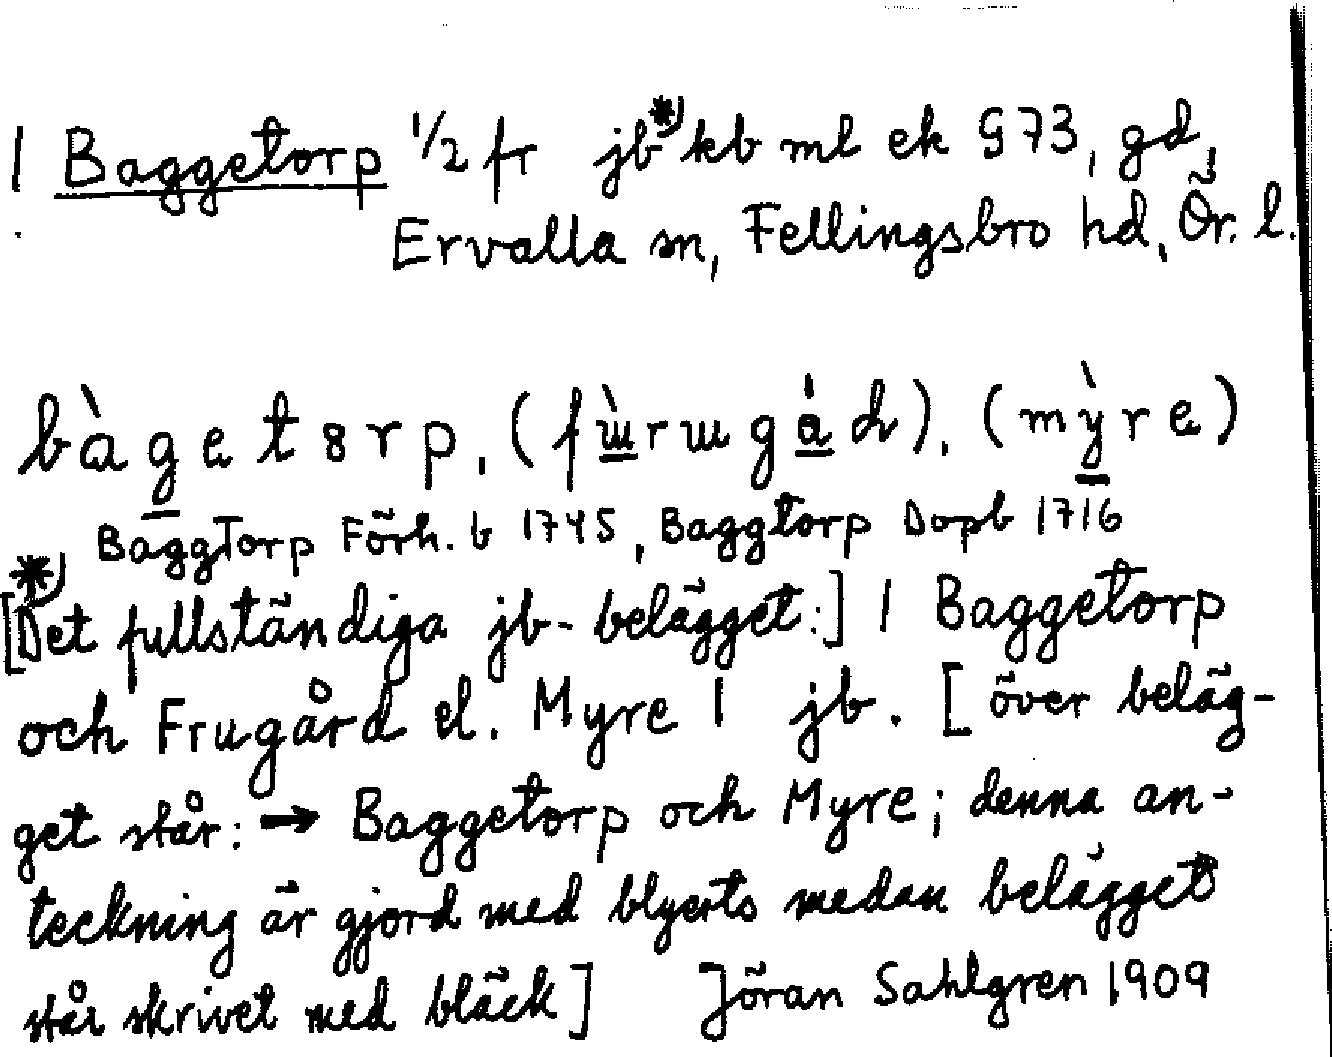 1 Baggetorp 1/2 fr jb*) kb ml ek G 73, gd,
Ervalla sn, Fellingsbro hd, Ör. l.
bàgetorp, (myre)
BaggTorp Förh. b 1745, Baggtorp Dopb 1716
*)
[Det fullständiga jb-belägget:] 1 Baggetorp
och Frugård el. Myre 1 jb. [över beläg-
get står: → Baggetorp och Myre; denna an-
teckning är gjord med blyerts medan belägget
står skrivet med bläck] Jöran Sahlgren 1909